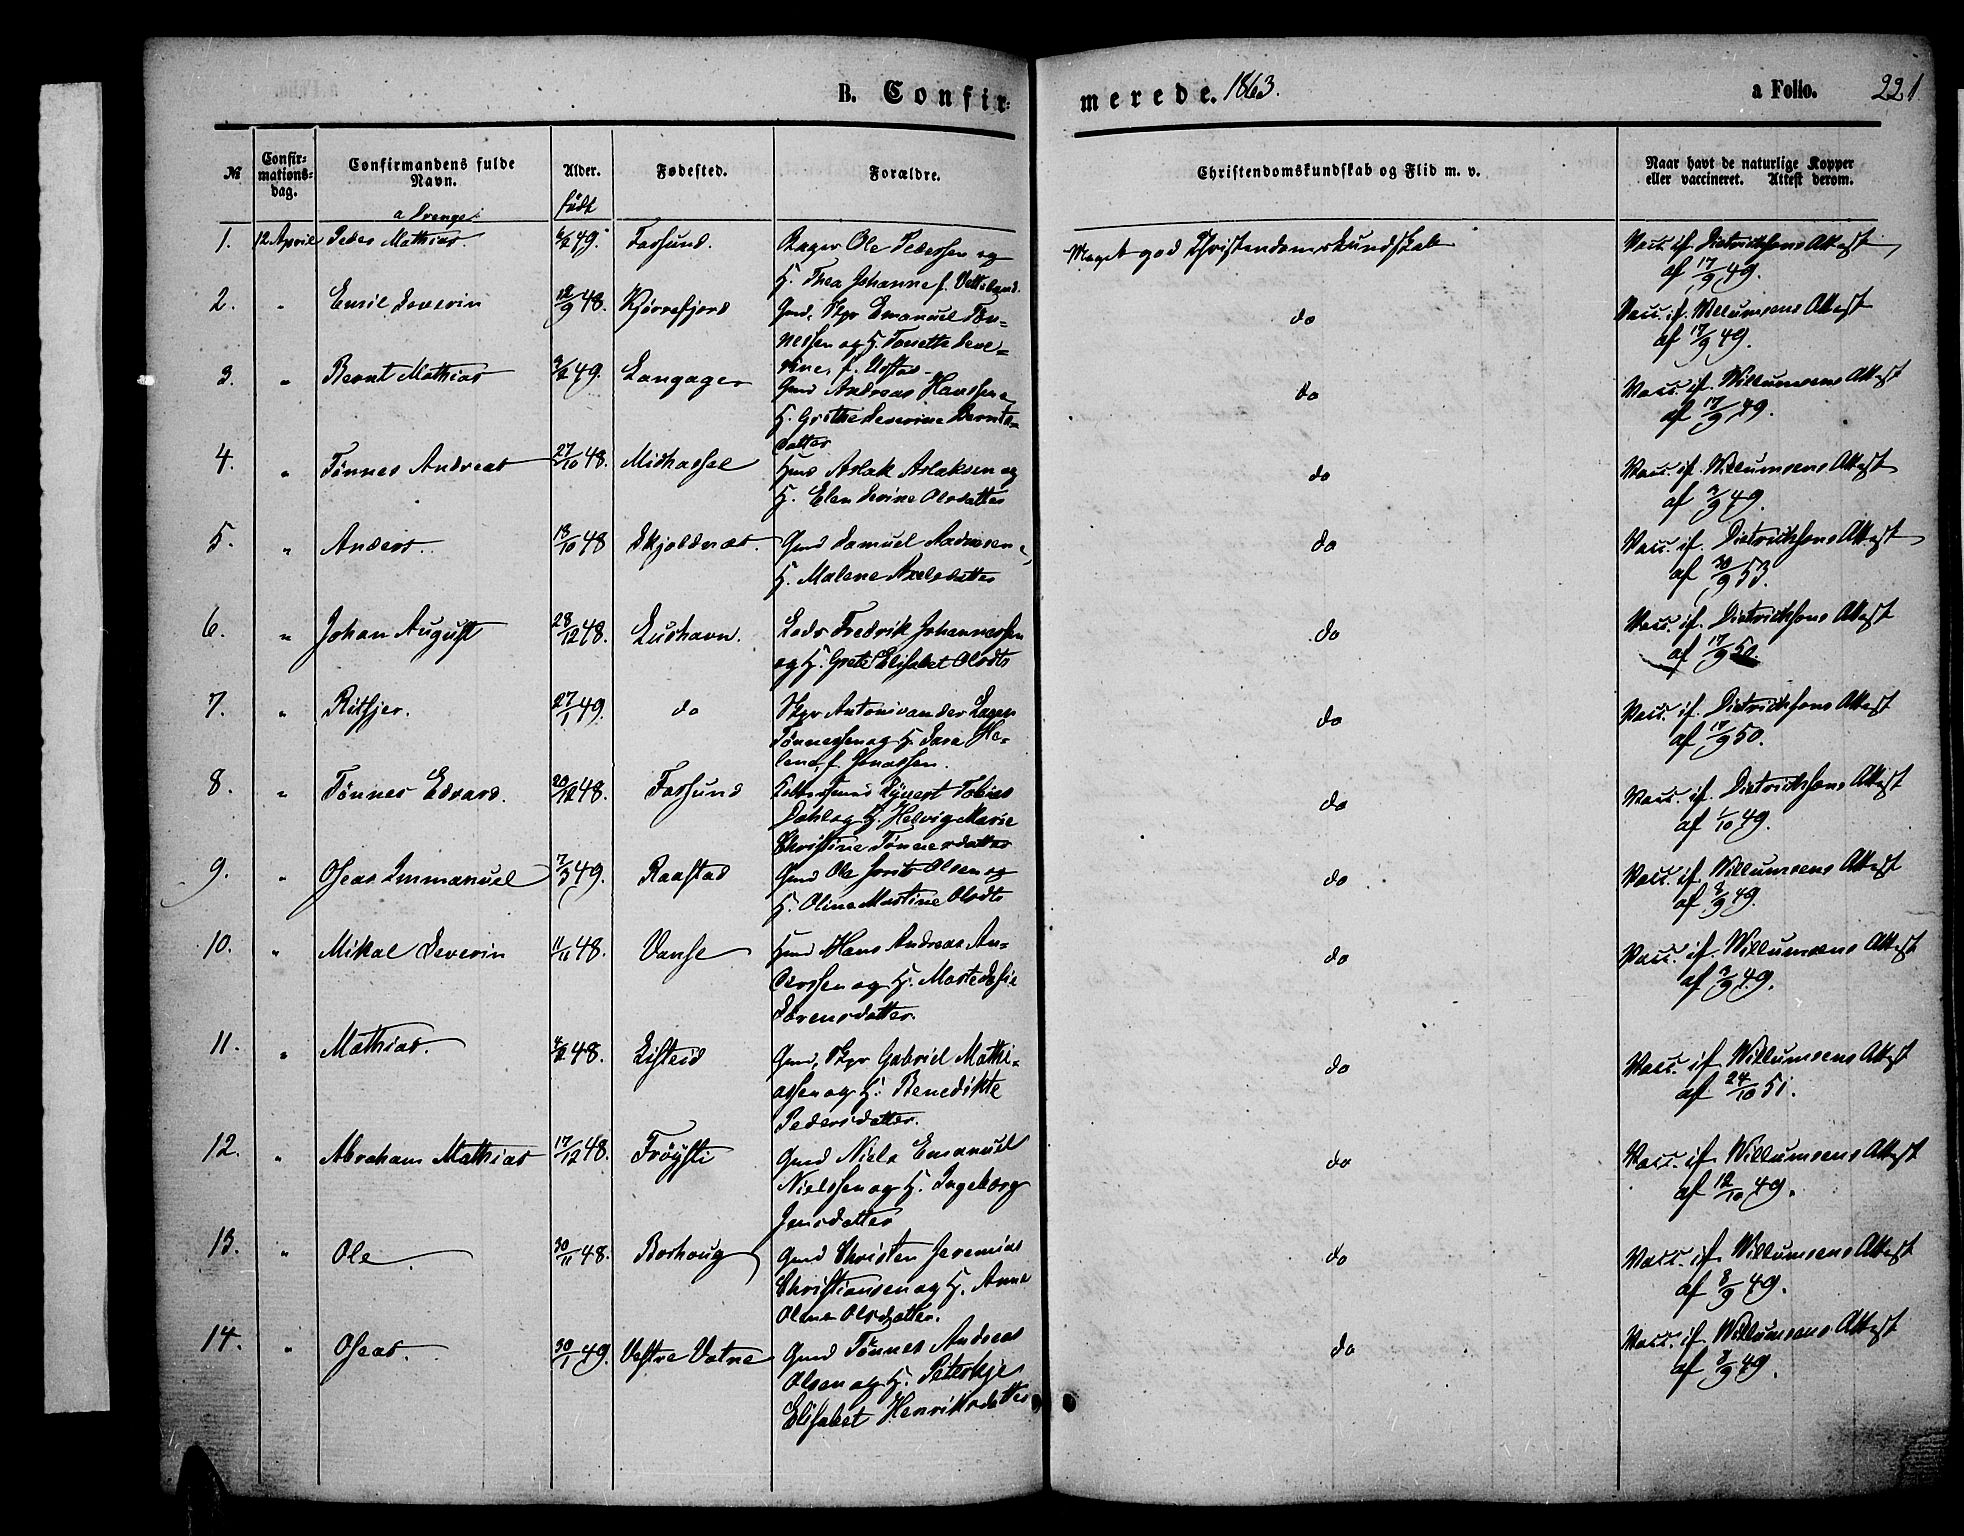 B. Confir-
merede. 1863.
a Folio. 221
№
Confir-
mations-
dag.
Confirmandens fulde
Navn.
Alder.
Fødested.
Forældre.
Christendomskundskab og Flid m. v.
Naar havt de naturlige Kopper
eller vaccineret. Attest derom.
a Drenge.
født
1. 12 April Peder Mathias. 49. Farsund. Bager Ole Pederssen og
H. Thea Johanne f.
Meget god Christendomskundskab
Vacc. if. Dietrichsons Attest
af 17/9 49.
2. " Emil Severin 12/9 48. Kjørrefjord Gmd, Skpr Emanuel Tøn-
nessen og H. Tonette Seve-
rine, f.
do
Vacc. if. Willumsens Attest
af 17/9 49.
3. " Bernt Mathias 49. Langager
Gmd Andreas Hanssen
H. Grethe Severine Bernts-
datter
do
Vacc. if. Willumsens Attest
af 17/9 49.
4. " Tønnes Andreas 27/10 48. Midhassel Hmd Aslak Aslaksen og
H. Elen Sevine Olsdatter
do
Vacc. if. Willumsens Attest
af 3/9 49.
5. " Anders. 18/10 48 Skjoldnæs. Gmd Samuel Aadnesen
H. Malene Axelsdatter
do
Vacc. if. Dietrichsons Attest
af 30/9 53.
6. " Johan August 28/12 48. Lushavn. Lods Fredrik Johannessen
og H. Grete Elisabet Olsdtr
do
Vacc. if. Dietrichsons Attest
af 17/9 50.
7. " Ritsjer. 27/1 49. do Skpr Antoni van der Lagen
Tønnessen og H. Sara He-
lene, f. Jonassen.
do
Vacc. if. Dietrichsons Attest
af 17/9 50.
8. " Tønnes Edvard. 20/12 48. Farsund Tobias
Dahl og H. Helvig Marie
Christine Tønnesdatter
do
Vacc. if. Dietrichsons Attest
af 1/10 49.
9. " Oseas Immanuel 7/3 49. Raastad Gmd Ole Olsen og
H. Oline Martine Olsdtr
do
Vacc. if. Willumsens Attest
af 8/9 49.
10. " Mikal Severin 11/11 48. Vanse Hmd Hans Andreas An-
derssen og H. Marte Sofie
Sørensdatter.
do
Vacc. if. Willumsens Attest
af 3/9 49.
11. " Mathias. 48. Listeid Gmd, Skpr Gabriel Mathi-
assen og H. Benedikte
Pedersdatter.
do
Vacc. if. Willumsens Attest
af 24/10 51.
12. " Abraham Mathias 17/12 48. Frøysti Gmd Niels Emanuel
Nielssen og H. Ingeborg
Jensdatter
do
Vacc. if. Willumsens Attest
af 12/10 49.
13. " Ole 30/11 48. Borhoug Gmd Christen Jeremias
Christiansen og H. Anne
Oline Olsdatter.
do
Vacc. if. Willumsens Attest
af 8/9 49.
14. " Oseas. 30/1 49. Vestre Vatne Gmd Tønnes Andreas
Olsen og H. Peterkje
Elisabet Henriksdatter
do
Vacc. if. Willumsens Attest
af 8/9 49.